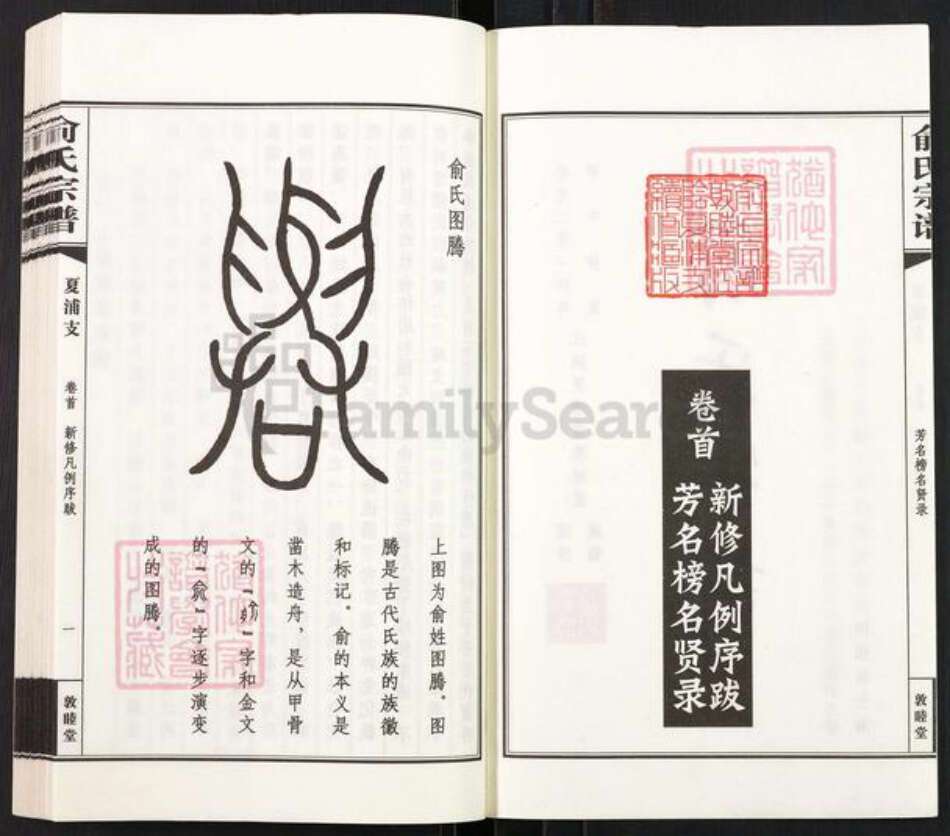 俞氏宗谱
芳名榜名贤录
敦睦堂
卷首
新修凡例序跋
芳名榜名贤录
俞氏图腾
上图为俞姓图腾。图
腾是古代氏族的族徽
和标记。俞的本义是
凿木造舟,是从甲骨
文的“ ”字和金文
的“ ”字逐步演变
成的图腾。
俞氏宗谱
夏浦支
卷首 新修凡例序跋
一
敦睦堂
FamilySearch